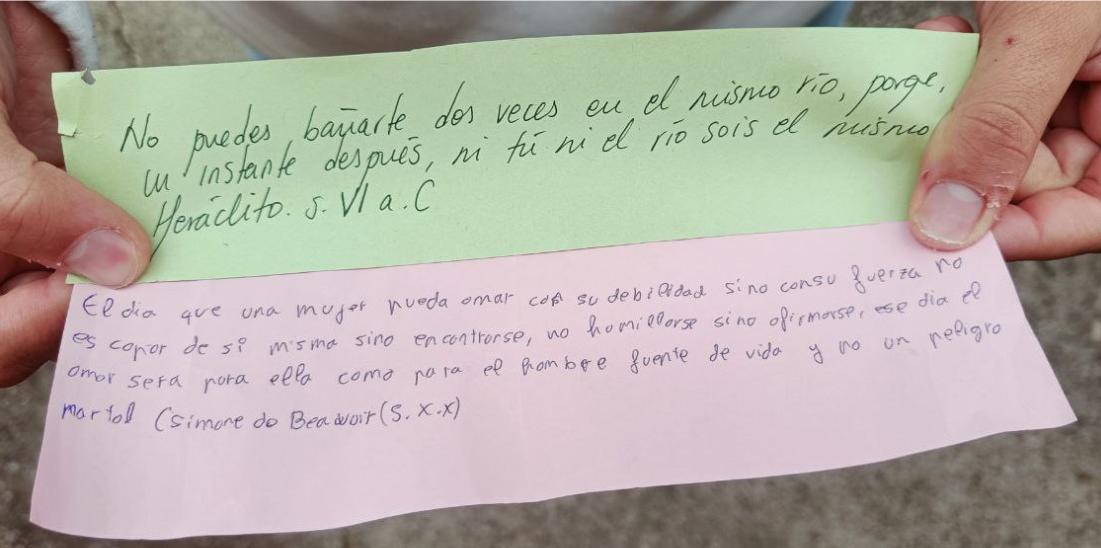 No puedes bañarte dos veces en el mismo río, porqe,
un instante después, ni tú ni el río sois el mismo
Heráclito. S. VI a. C
El dia que una mujer pueda amar con su debilidad sino consu fuerza no
es capar de si misma sino encontrarse, no humillarse sino afirmarse, ese dia el
amor sera para ella como para el hombre fuente de vida y no un peligro
martal (Simone de Beauvoir (S. X.X)